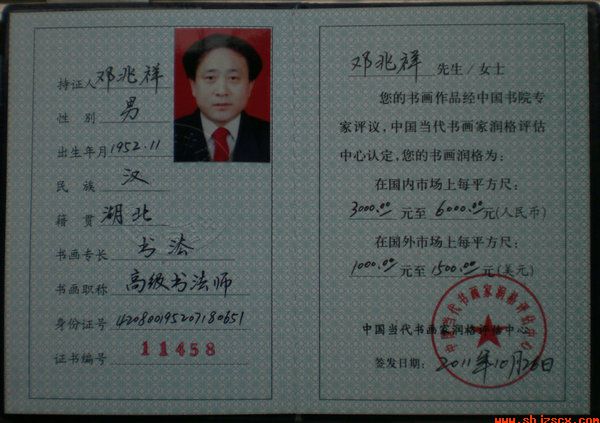 持证人 邓兆祥
性 别 男
出生年月 1952.11
民 族 汉
籍 贯 湖北
书画专长 书法
书画职称 高级书法师
身份证号 420800195207180651
证书编号 11458
邓兆祥 先生/女士
您的书画作品经中国书院专
家评议,中国当代书画家润格评估
中心认定,您的书画润格为:
在国内市场上每平方尺:
3000.00 元至 6000.00 元(人民币)
在国外市场上每平方尺:
1000.00 元至 1500.00 元(美元)
中国当代书画家润格评估中心
签发日期: 2011年10月26日
中国当代书画家润格评估中心
www.sbjzscx.com